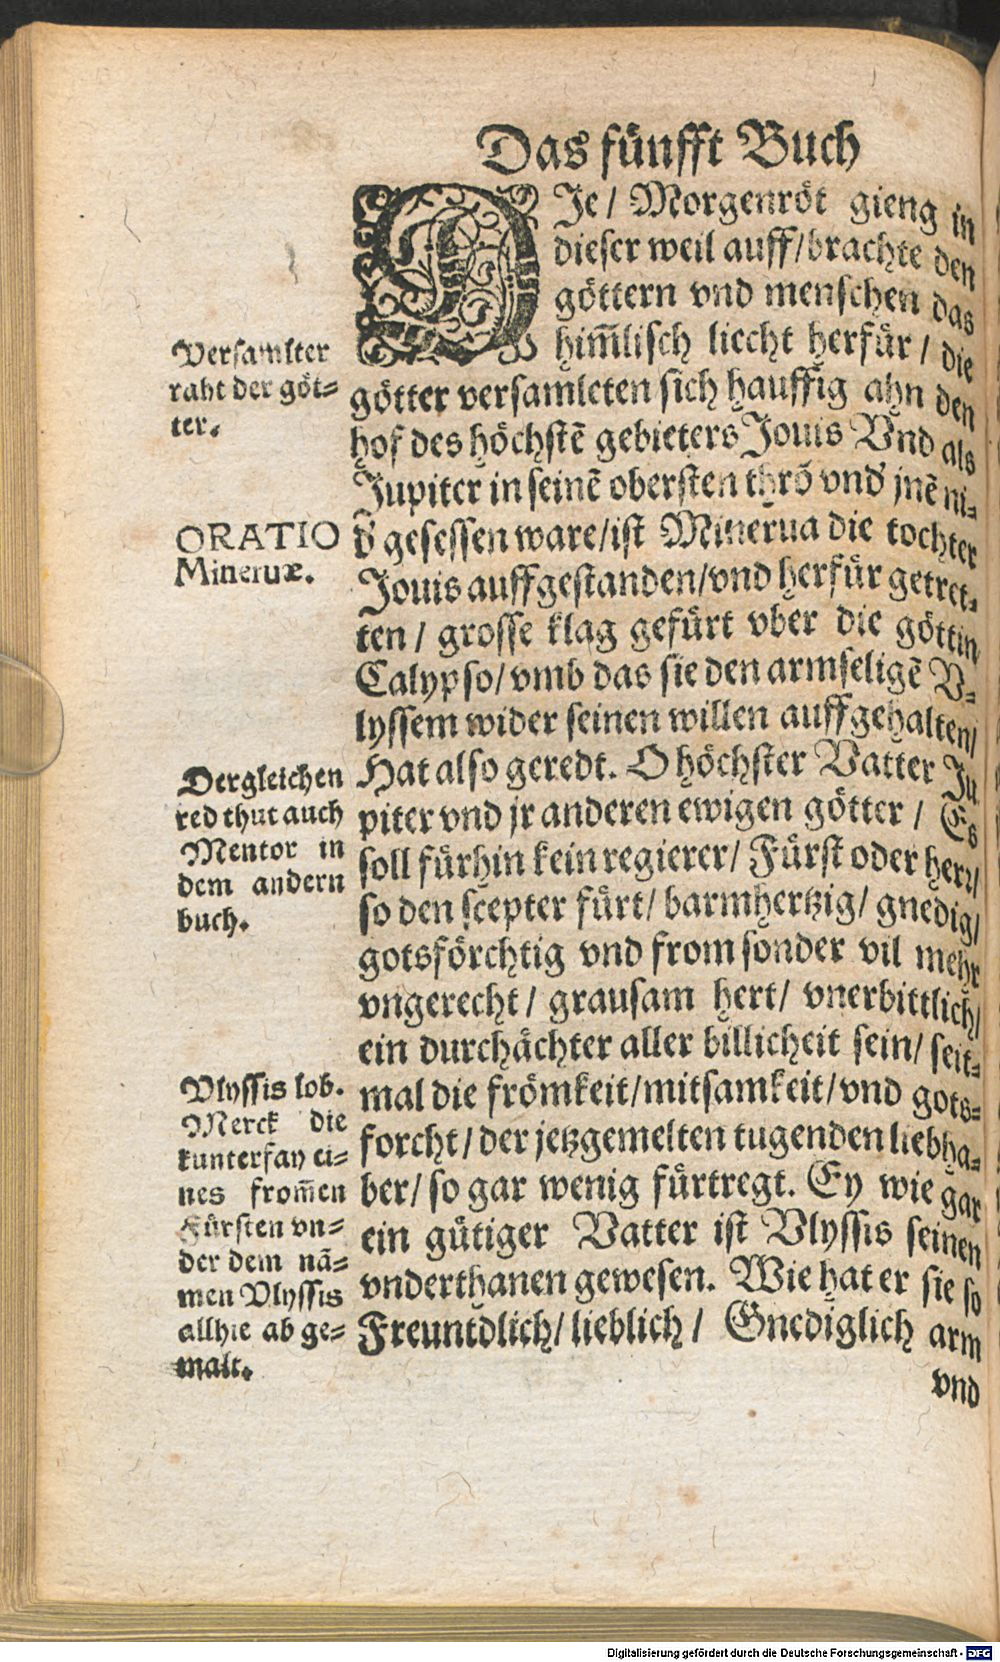 Das fünfft Buch
DJe / Morgenröt gieng in
dieser weil auff / brachte den
göttern vnd menschen das
him̃lisch liecht herfür / die
götter versamleten sich hauffig ahn den
hof des höchstẽ gebieters Jouis Vnd als
Jupiter in seinẽ obersten thrõ vnd jnẽ ni-
d' gesessen ware / ist Minerua die tochter
Jouis auffgestanden / vnd herfür getret-
ten / grosse klag gefürt vber die göttin
Calypso / vmb das sie den armseligẽ V-
lyssem wider seinen willen auffgehalten /
Hat also geredt. O höchster Vatter Ju
piter vnd jr anderen ewigen götter / Es
soll fürhin kein regierer / Fürst oder herr /
so den scepter fürt / barmhertzig / gnedig /
gotsförchtig vnd from sonder vil mehr
vngerecht / grausam hert / vnerbittlich /
ein durchächter aller billicheit sein / seit-
mal die frömkeit / mitsamkeit / vnd gots-
forcht / der jetzgemelten tugenden liebha-
ber / so gar wenig fürtregt. Ey wie gar
ein gütiger Vatter ist Vlyssis seinen
vnderthanen gewesen. Wie hat er sie so
Freuntdlich / lieblich / Gnediglich arm
vnd
Versamlter
raht der göt-
ter.
ORATIO
Mineruæ.
Dergleichen
red thut auch
Mentor in
dem andern
buch.
Vlyssis lob.
Merck die
kunterfay ei-
nes from̃en
Fürsten vn-
der dem nã-
men Vlyssis
allhie ab ge-
malt.
Digitalisierung gefördert durch die Deutsche Forschungsgemeinschaft - DFG